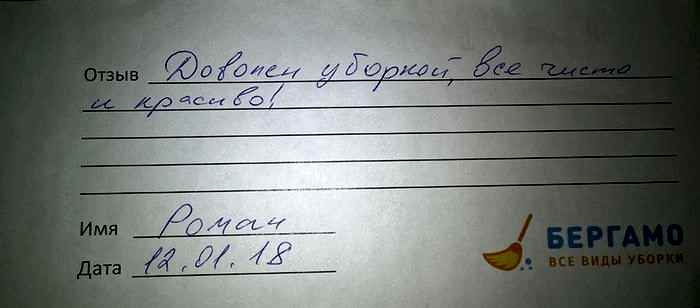 Отзыв Доволен уборкой, все чисто
и красиво!
Имя Роман
Дата 12.01.18
БЕРГАМО
ВСЕ ВИДЫ УБОРКИ